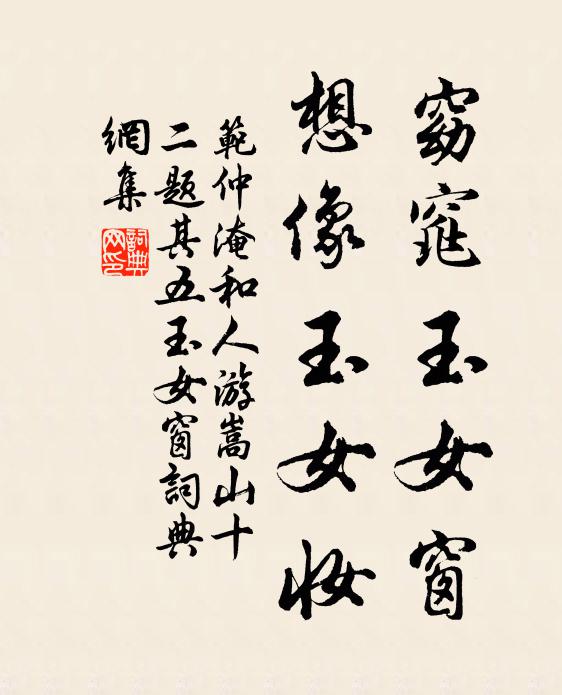 窈窕玉女窗
想像玉女妝
範仲淹和人游嵩山十
二题其五玉女窗詞典
網集
詞典
网印